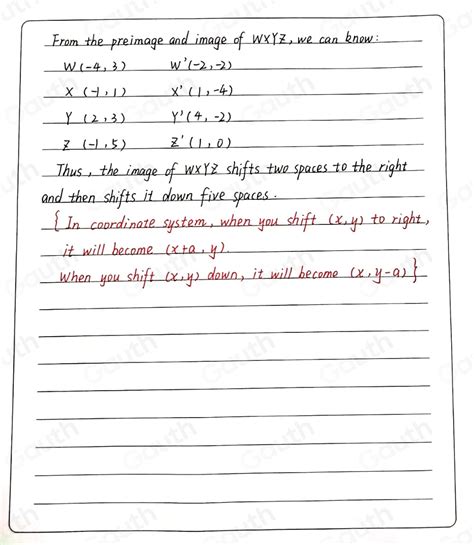 From the preimage and image of WXYZ, we can know:
W(-4,3) W'(-2,-2)
X (-1,1) X'(1,-4)
Y (2,3) Y'(4,-2)
Z (-1,5) Z'(1,0)
Thus, the image of WXYZ shifts two spaces to the right
and then shifts it down five spaces.
{In coordinate system, when you shift (x,y) to right,
it will become (x+a, y).
When you shift (x,y) down, it will become (x,y-a)}